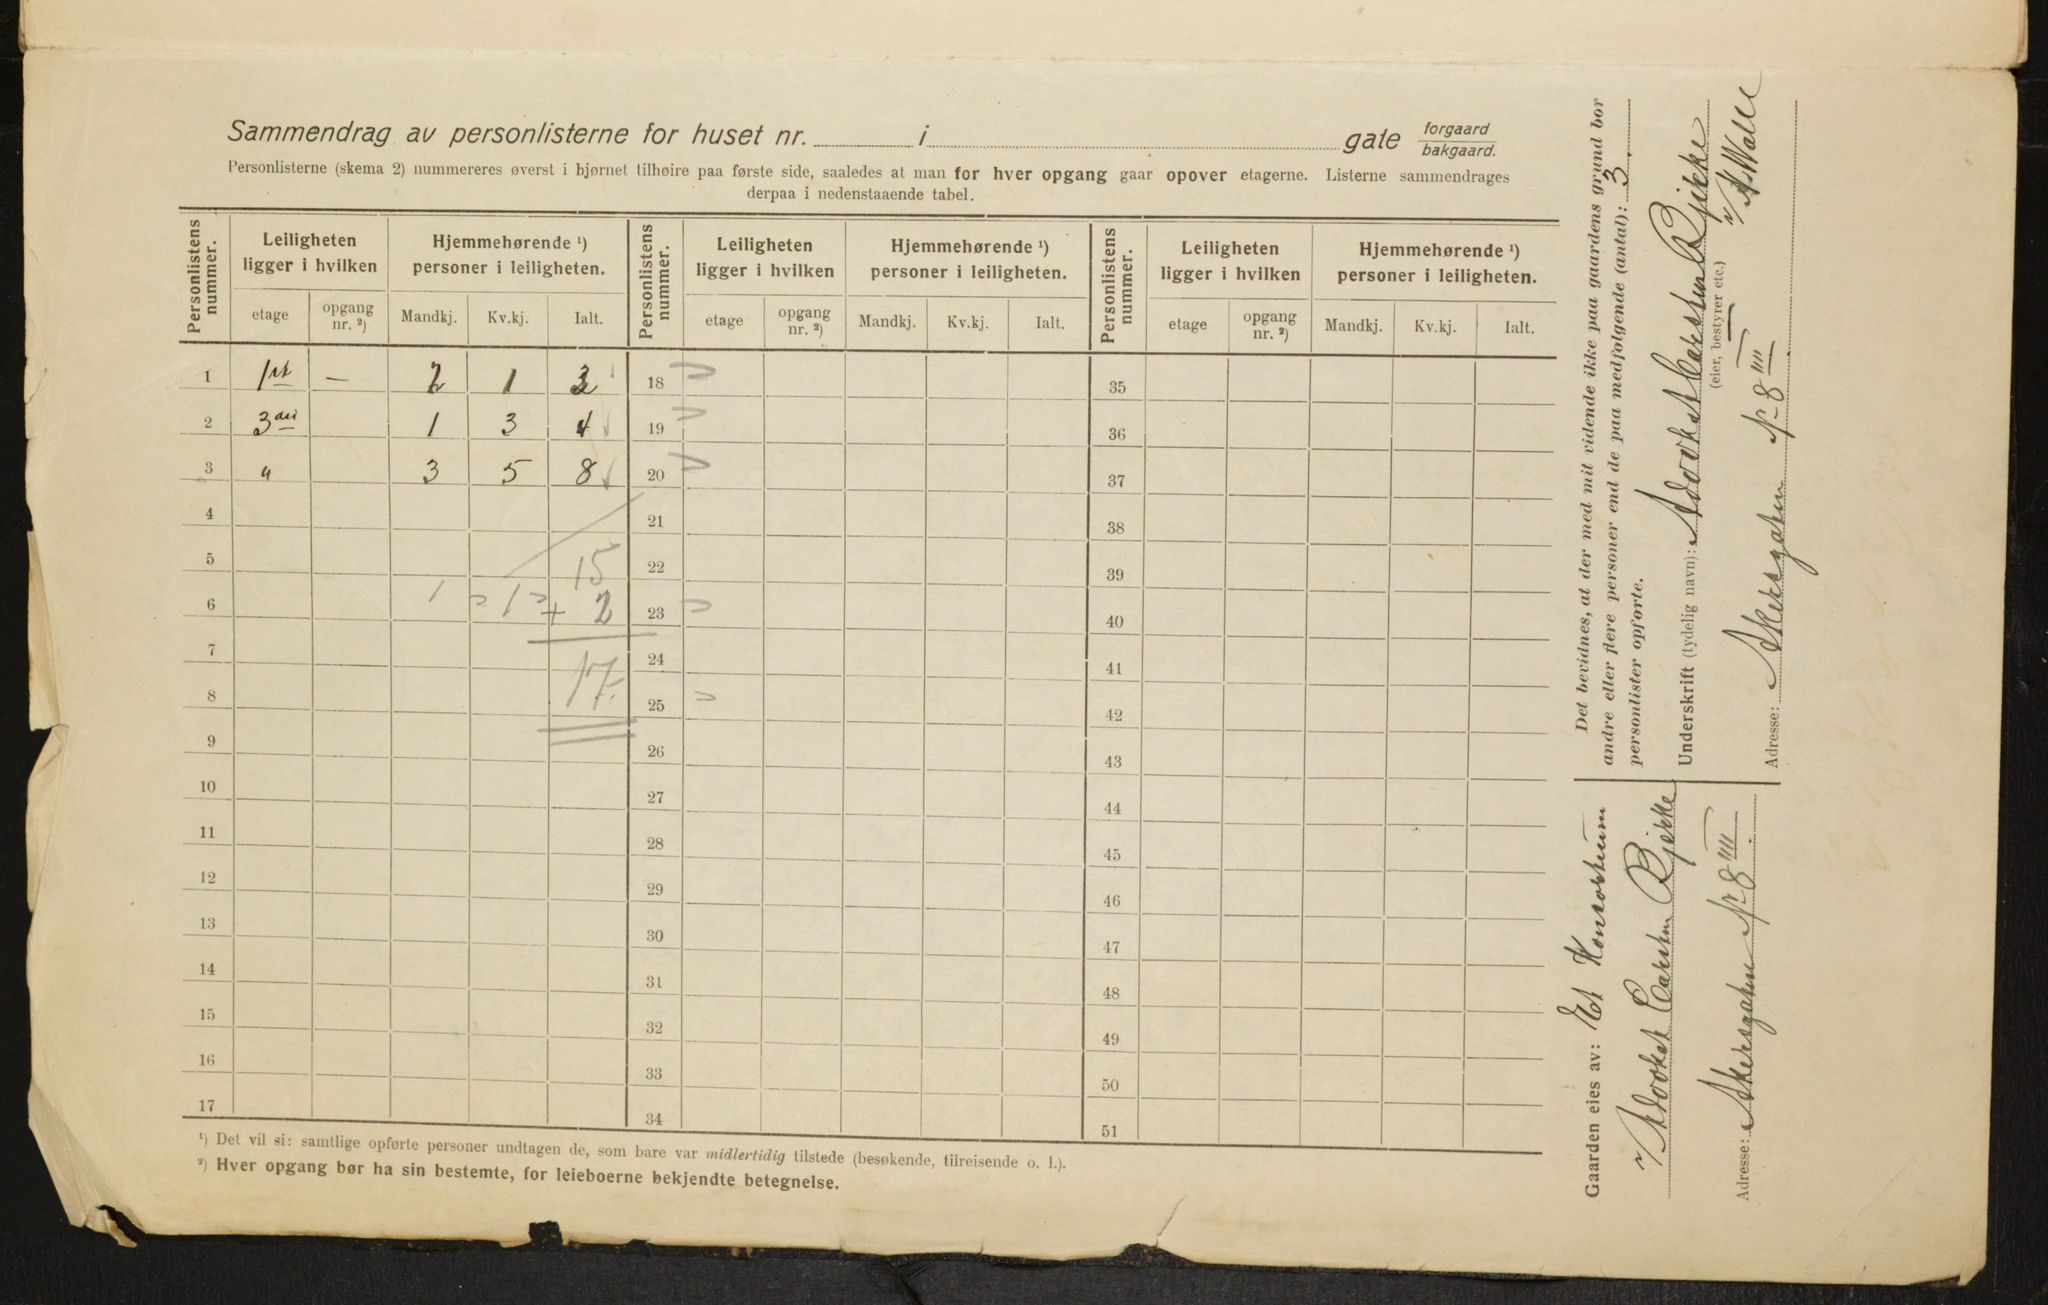 Sammendrag av personlisterne for huset nr. i gate forgaard bakgaard.
Personlisterne (skema 2) nummereres øverst i hjørnet tilhøire paa første side, saaledes at man for hver opgang gaar opover etagerne. Listerne sammendrages
derpaa i nedenstaaende tabel.
Personlistens nummer. Leiligheten ligger i hvilken Hjemmehørende ¹) personer i leiligheten. Personlistens nummer. Leiligheten ligger i hvilken Hjemmehørende ¹) personer i leiligheten. Personlistens nummer. Leiligheten ligger i hvilken Hjemmehørende ¹) personer i leiligheten.
etage opgang nr. ²) Mandkj. Kv.kj. Ialt. etage opgang nr. ²) Mandkj. Kv.kj. Ialt. etage opgang nr. ²) Mandkj. Kv.kj. Ialt.
1 1ste — 2 1 3 18 35
2 3die 1 3 4 19 36
3 " 3 5 8 20 37
4 21 38
5 15 22 39
6 1 1 + 2 23 40
7 17. 24 41
8 25 42
9 26 43
10 27 44
11 28 45
12 29 46
13 30 47
14 31 48
15 32 49
16 33 50
17 34 51
¹) Det vil si: samtlige opførte personer undtagen de, som bare var midlertidig tilstede (besøkende, tilreisende o. l.).
²) Hver opgang bør ha sin bestemte, for leieboerne bekjendte betegnelse.
Det bevidnes, at der med mit vidende ikke paa gaardens grund bor
andre eller flere personer end de paa medfølgende (antal): 3.
personlister opførte.
Underskrift (tydelig navn): Advokat Carsten Bjekke
(eier, bestyrer etc.)
v/ A Wall
Adresse: Akersgaten No 8 IIII
Gaarden eies av: Et Konsortium
v/ Advokat Carsten Bjekke
Adresse: Akersgaten No 8 IIII